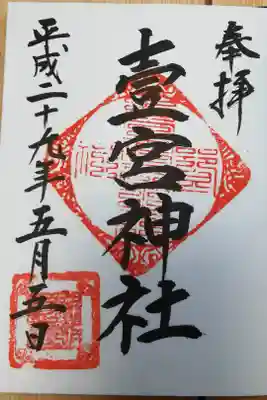 奉拝
壹宮神社
平成二十九年五月五日